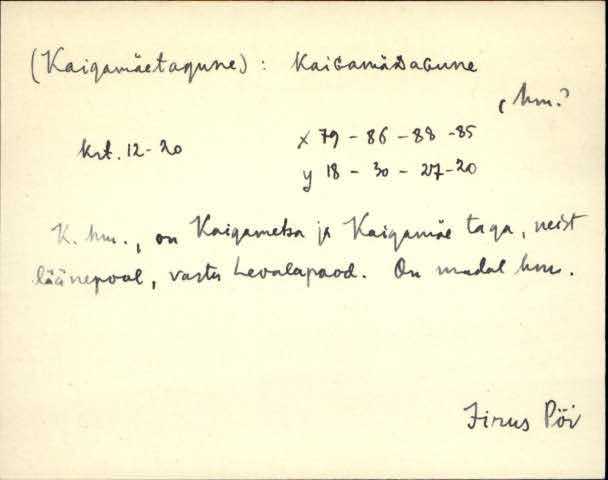 (Kaigamäetagune): KaiGamäDaGune
, hm.?
krt. 12-20 x 79 - 86 - 88 - 85
y 18 - 30 - 27 - 20
K. hm., on Kaigametsa ja Kaigamäe taga, neist
läänepool, vastu Levalapaod. On madal hm.
Jirus Pöi